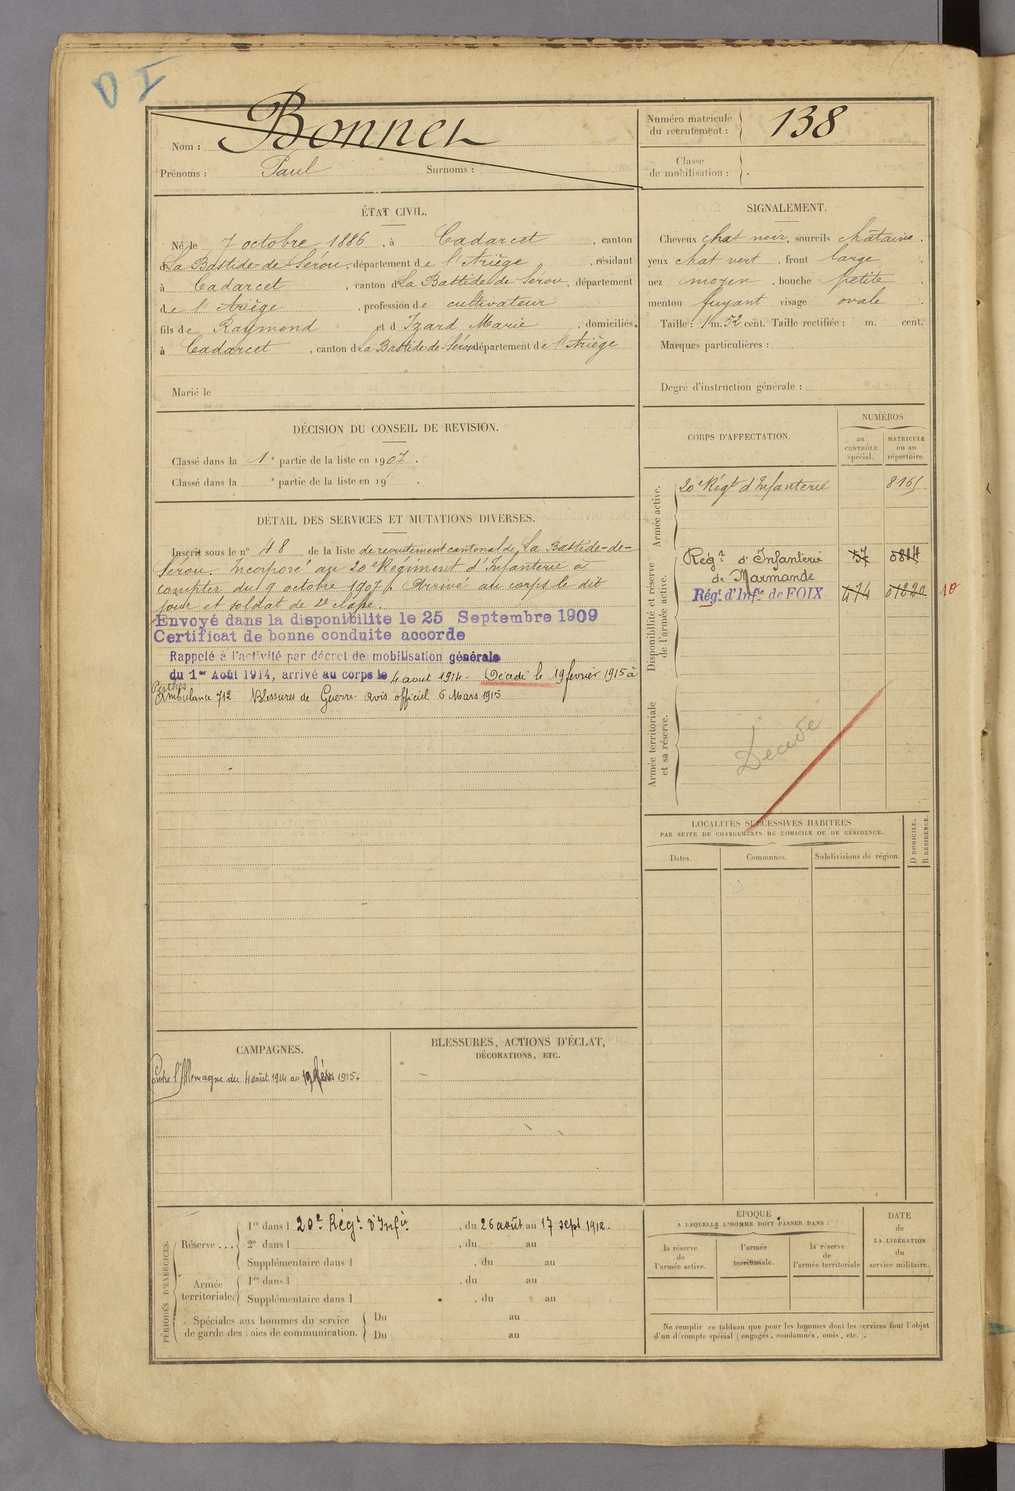 D I
Nom : Bonnet
Prénoms : Paul Surnoms :
Numéro matricule du recrutement : 138
Classe de mobilisation :
ÉTAT CIVIL.
Né le 7 octobre 1886, à Cadarcet, canton
de La Bastide-de-Sérou, département de l'Ariège, résidant
à Cadarcet, canton de La Bastide de Sérou, département
de l'Ariège, profession de cultivateur
fils de Raymond et d'Izard Marie, domiciliés
à Cadarcet, canton de La Bastide-de-Sérou département de l'Ariège
Marié le
SIGNALEMENT.
Cheveux chat noir, sourcils châtains.
yeux chat vert, front large
nez moyen, bouche petite
menton fuyant visage ovale
Taille : 1 m. 52 cent. Taille rectifiée : m. cent.
Marques particulières :
Degré d'instruction générale :
DÉCISION DU CONSEIL DE REVISION.
Classé dans la 1e partie de la liste en 1907.
Classé dans la e partie de la liste en 19 .
DÉTAIL DES SERVICES ET MUTATIONS DIVERSES.
Inscrit sous le n° 48 de la liste de recrutement cantonal de La Bastide-de-
Sérou. Incorporé au 20e Régiment d'Infanterie à
compter du 9 octobre 1907. Arrivé au corps le dit
jour et soldat de 2e classe.
Envoyé dans la disponibilite le 25 Septembre 1909
Certificat de bonne conduite accorde
Rappelé à l'activité par décret de mobilisation générale
du 1er Août 1914, arrivé au corps le 4 aout 1914. Décédé le 19 février 1915 à
Perthes
Ambulance 7/12. Blessures de Guerre. Avis officiel 6 Mars 1915
CORPS D'AFFECTATION.
NUMÉROS
au CONTRÔLE spécial.
MATRICULE ou au répertoire.
Armée active.
20e Régt d'Infanterie 8165
Disponibilité et réserve de l'armée active.
Régt d'Infanterie 57 0814
de Marmande
Régt d'Infie de FOIX 474 01220 10
Armée territoriale et sa réserve.
Décédé
LOCALITÉS SUCCESSIVES HABITÉES
PAR SUITE DE CHANGEMENTS DE DOMICILE OU DE RÉSIDENCE.
Dates. Communes. Subdivisions de région. D DOMICILE. R RÉSIDENCE.
CAMPAGNES.
Contre l'Allemagne du 4 août 1914 au 19 février 1915.
BLESSURES, ACTIONS D'ÉCLAT,
DÉCORATIONS, ETC.
PÉRIODES D'EXERCICES.
Réserve ... 1re dans l 20e Régt d'Infie, du 26 août au 17 sept 1912.
2e dans l , du au
Supplémentaire dans l , du au
Armée territoriale. 1re dans l , du au
Supplémentaire dans l , du au
Spéciales aux hommes du service de garde des voies de communication. Du au
Du au
ÉPOQUE
A LAQUELLE L'HOMME DOIT PASSER DANS :
la réserve de l'armée active.
l'armée territoriale.
la réserve de l'armée territoriale
DATE de LA LIBÉRATION du service militaire.
Ne remplir ce tableau que pour les hommes dont les services font l'objet
d'un décompte spécial (engagés, condamnés, omis, etc.).